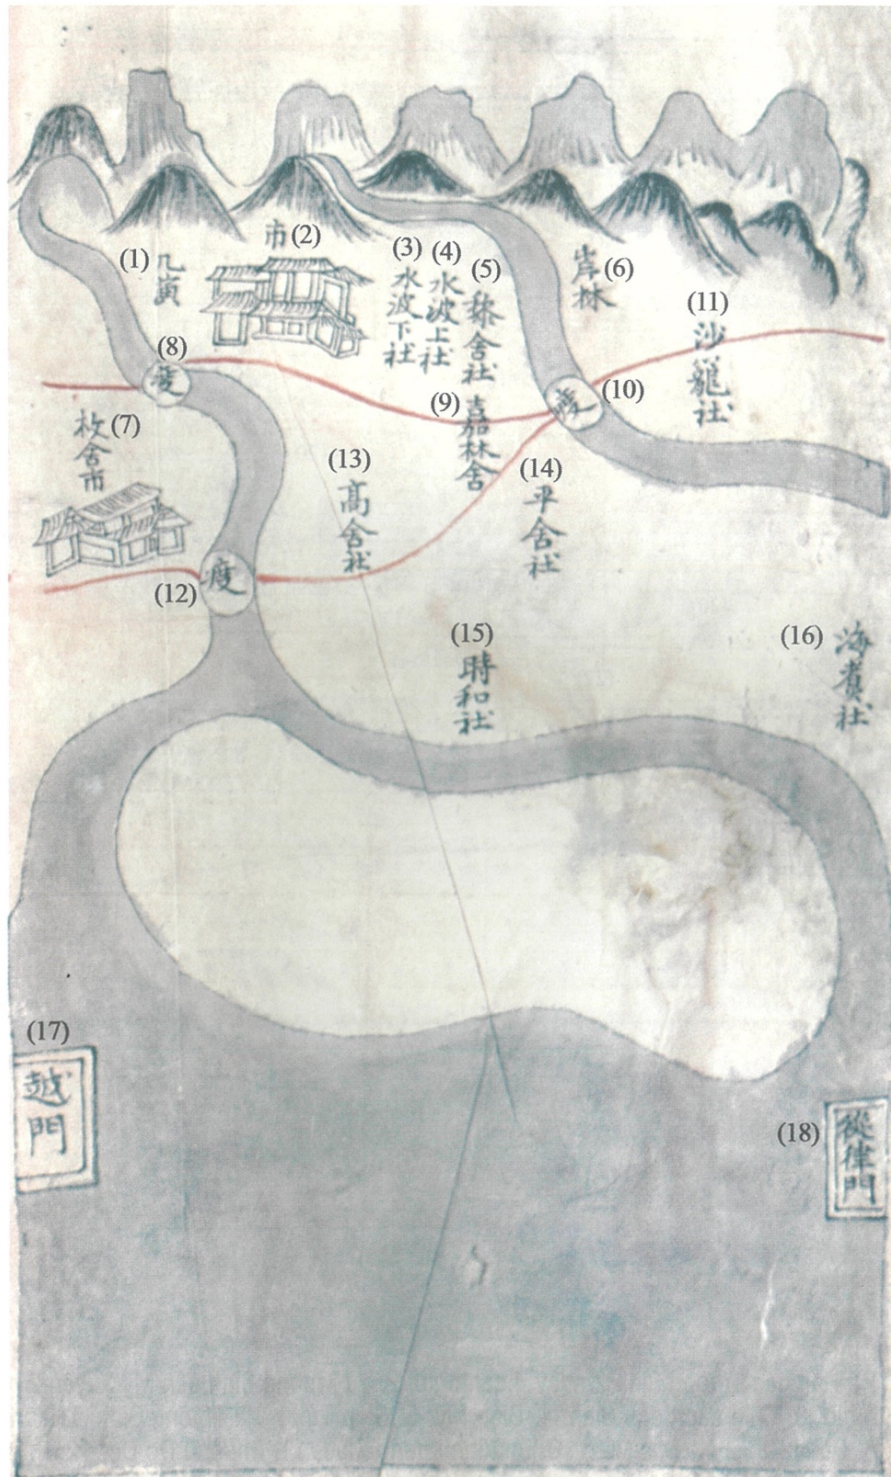 (1) 几寅
市 (2)
(3) 水波下社
(4) 水波上社
(5) 黎舍社
岸林 (6)
(7) 枚舍市
(8) 度
(9) 嘉林舍
(10) 度
(11) 沙籠社
(12) 度
(13) 高舍社
(14) 平舍社
(15) 時和社
(16) 海賓社
(17) 越門
(18) 從律門